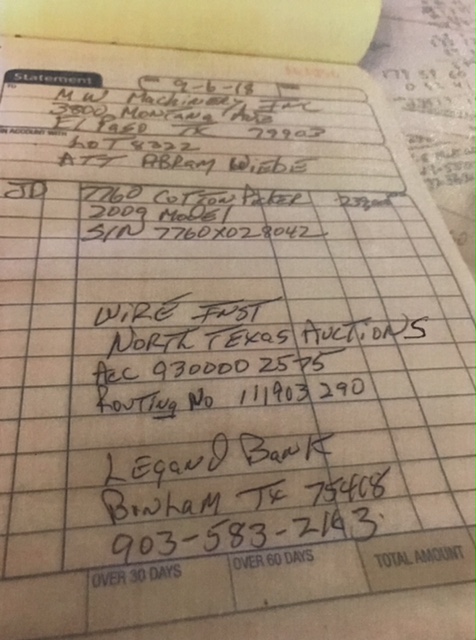 Statement
9-6-18
TO
MW Machinery Inc
3800 Montana Ave
El Paso TX 79903
IN ACCOUNT WITH
LOT 8322
ATT ABRAM WIEBE
JD 7760 COTTON PICKER
2009 MODEL
S/N 7760X028042
WIRE INST
NORTH TEXAS AUCTIONS
Acc 930000 2575
Routing No 111903 290
LEGAND BANK
BONHAM TX 75418
903-583-2143
OVER 30 DAYS OVER 60 DAYS TOTAL AMOUNT